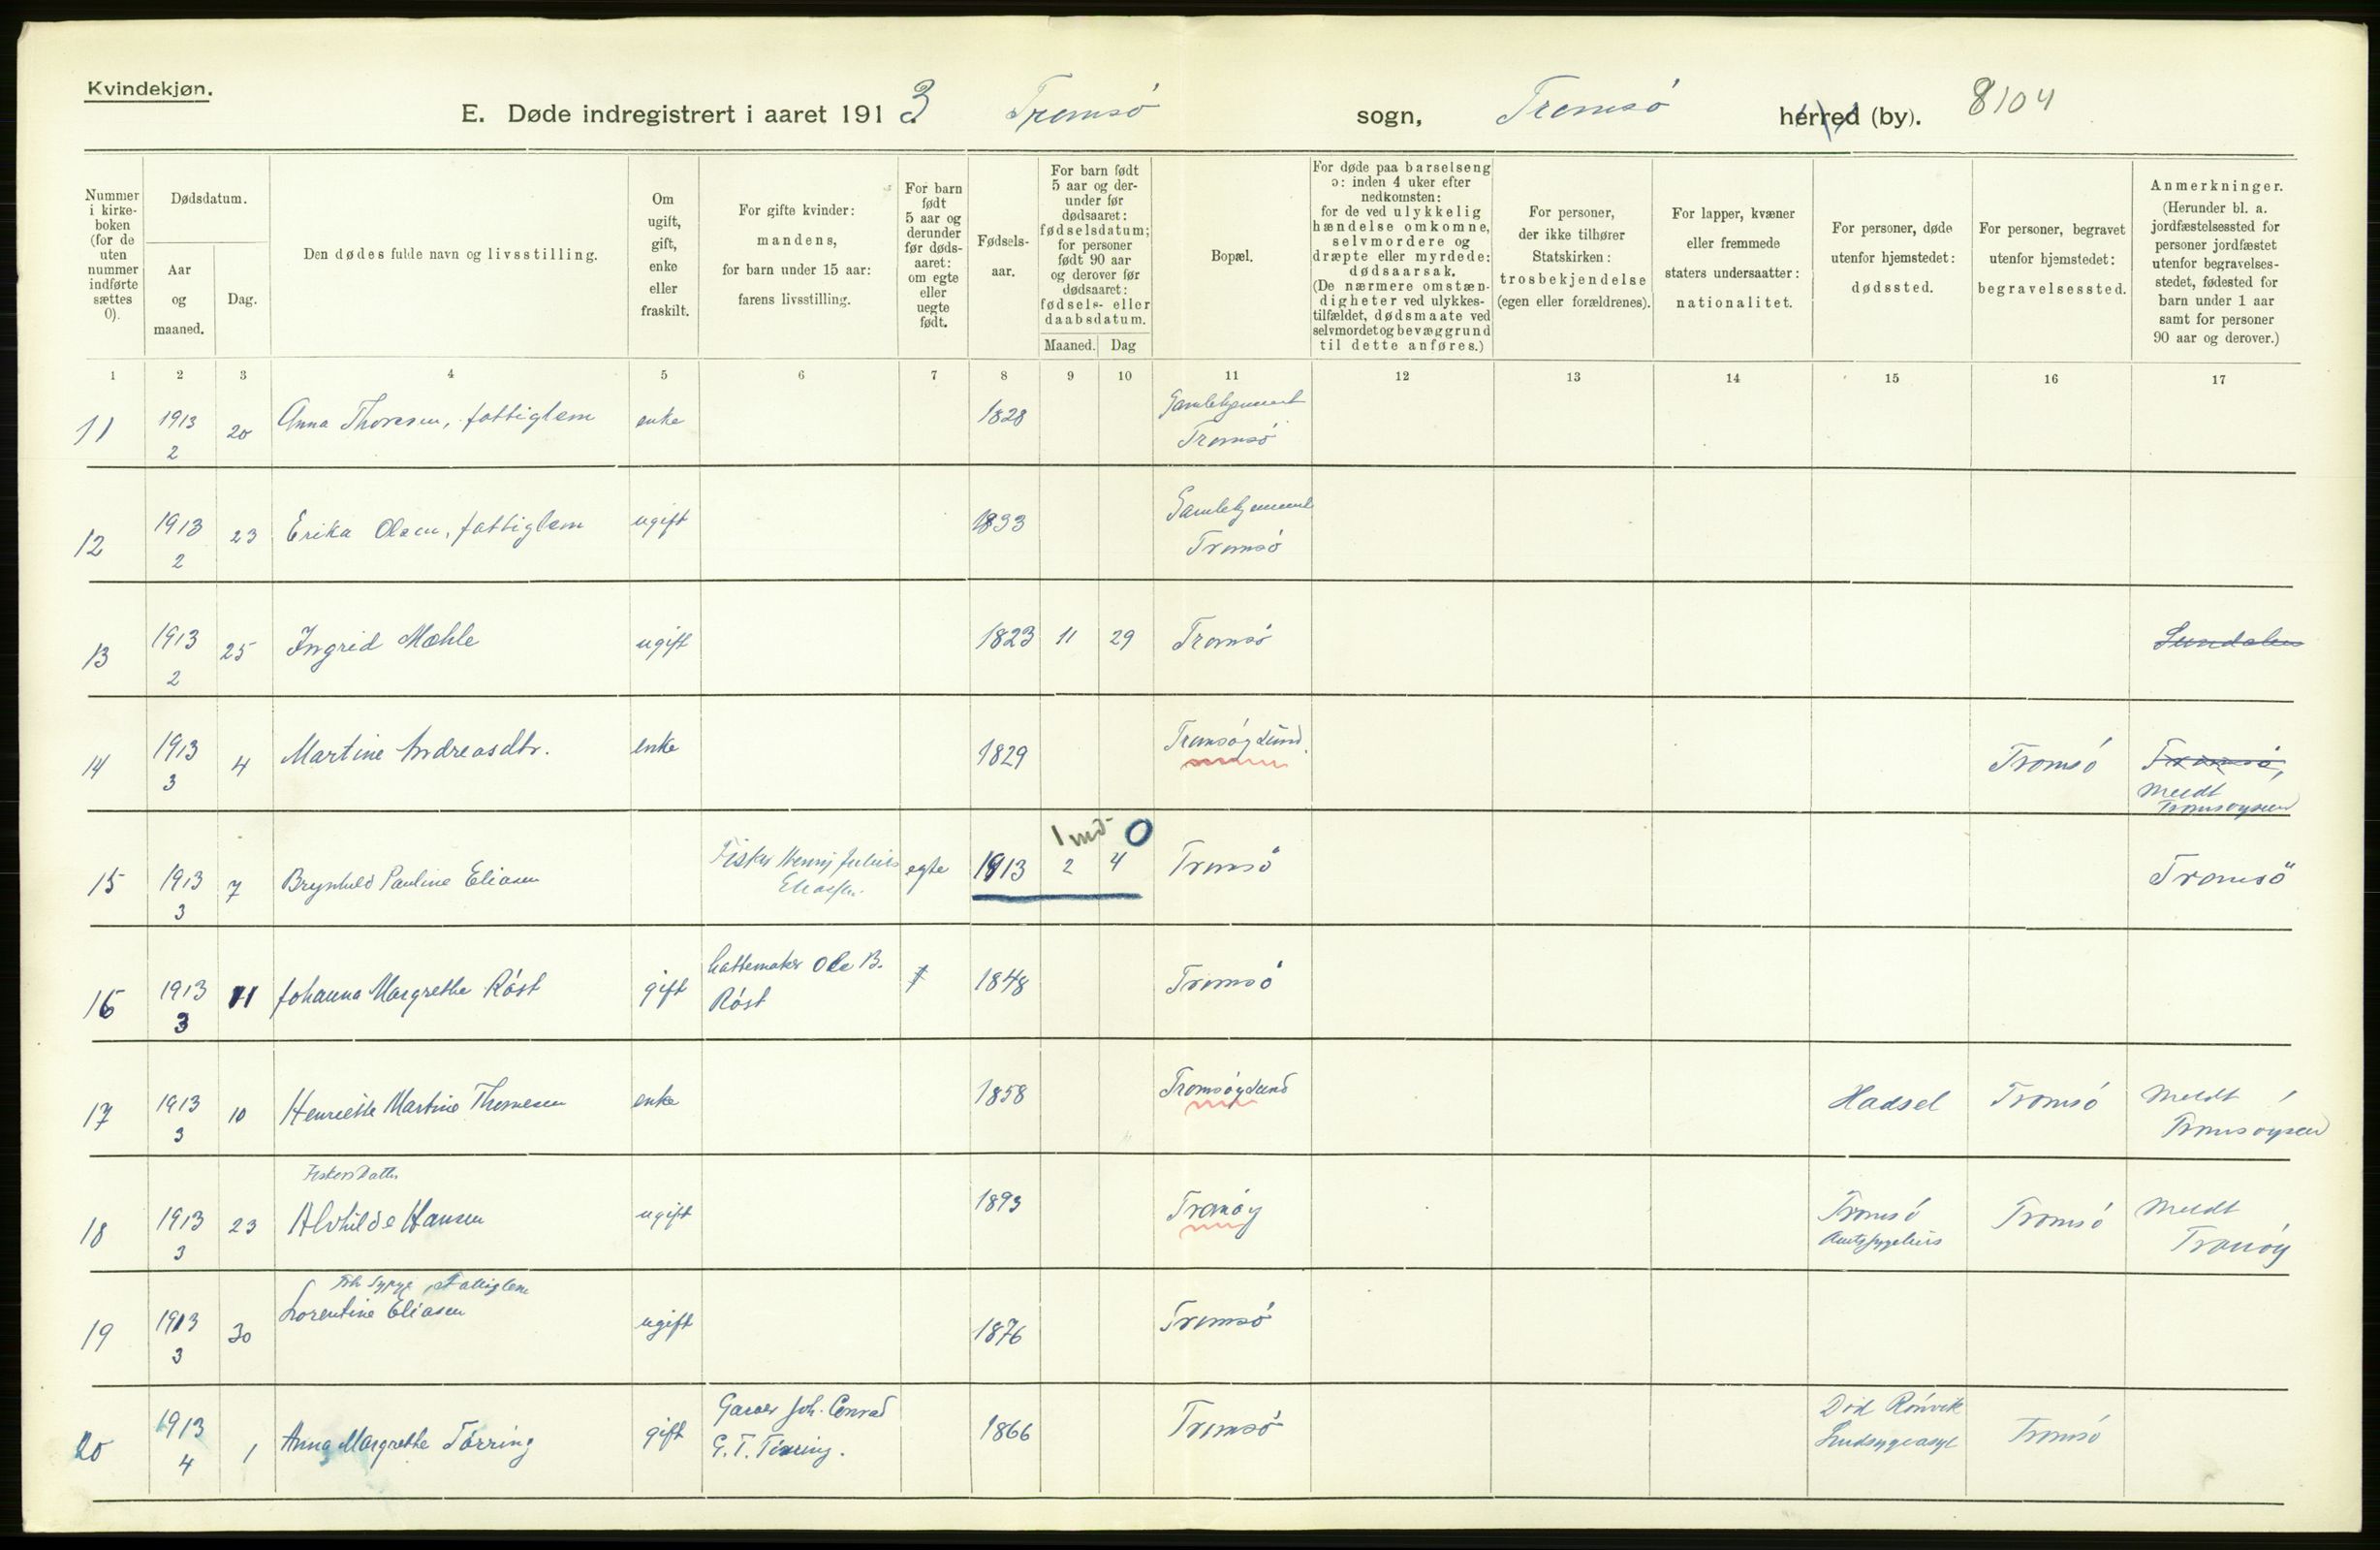 Kvindekjøn.
E. Døde indregistrert i aaret 1913. Tromsö sogn, Tromsö herred (by). 8104
Nummer i kirke-boken (for de uten nummer indførte sættes 0).
Dødsdatum.
Aar og maaned.
Dag.
Den dødes fulde navn og livsstilling.
Om ugift, gift, enke eller fraskilt.
For gifte kvinder: mandens, for barn under 15 aar: farens livsstilling.
For barn født 5 aar og derunder før døds-aaret: om egte eller uegte født.
Fødsels-aar.
For barn født 5 aar og der-under før dødsaaret: fødselsdatum; for personer født 90 aar og derover før dødsaaret: fødsels- eller daabsdatum.
Maaned. Dag
Bopæl.
For døde paa barselseng ɔ: inden 4 uker efter nedkomsten: for de ved ulykkelig hændelse omkomne, selvmordere og dræpte eller myrdede: dødsaarsak. (De nærmere omstæn-digheter ved ulykkes-tilfældet, dødsmaate ved selvmordet og bevæggrund til dette anføres.)
For personer, der ikke tilhører Statskirken: trosbekjendelse (egen eller forældrenes).
For lapper, kvæner eller fremmede staters undersaatter: nationalitet.
For personer, døde utenfor hjemstedet: dødssted.
For personer, begravet utenfor hjemstedet: begravelsessted.
Anmerkninger. (Herunder bl. a. jordfæstelsessted for personer jordfæstet utenfor begravelses-stedet, fødested for barn under 1 aar samt for personer 90 aar og derover.)
1 2 3 4 5 6 7 8 9 10 11 12 13 14 15 16 17
11 1913 2 20 Anna Thoresen, fattiglem enke 1828 Gamlehjemmet Tromsö
12 1913 2 23 Erika Olsen, fattiglem ugift 1833 Gamlehjemmet Tromsö
13 1913 2 25 Ingrid Mæhle ugift 1823 11 29 Tromsö
14 1913 3 4 Martine Andreasdtr. enke 1829 Tromsöysund. Tromsö Tromsö, Meldt Tromsøysun
1 md 0
15 1913 3 7 Brynhild Pauline Eliasen Fisker Henry Julius Eliassen egte 1913 2 4 Tromsö Tromsö
16 1913 3 11 Johanna Margrethe Röst gift Hattemaker Ole B. Röst 1848 Tromsö
17 1913 3 10 Henriette Martine Thomesen enke 1858 Tromsöysund Hadsel Tromsö Meldt Tromsöysun
Fiskers datter
18 1913 3 23 Alvhilde Hansen ugift 1893 Tranöy Tromsö Amtssygehus Tromsö Meldt Tranöy
Fattiglem
19 1913 3 30 Lorentine Eliasen ugift 1876 Tromsö
20 1913 4 1 Anna Margrethe Törring gift Garver Joh. Conrad G. T. Törring. 1866 Tromsö Död Rönvik Sindsygeasyl Tromsö